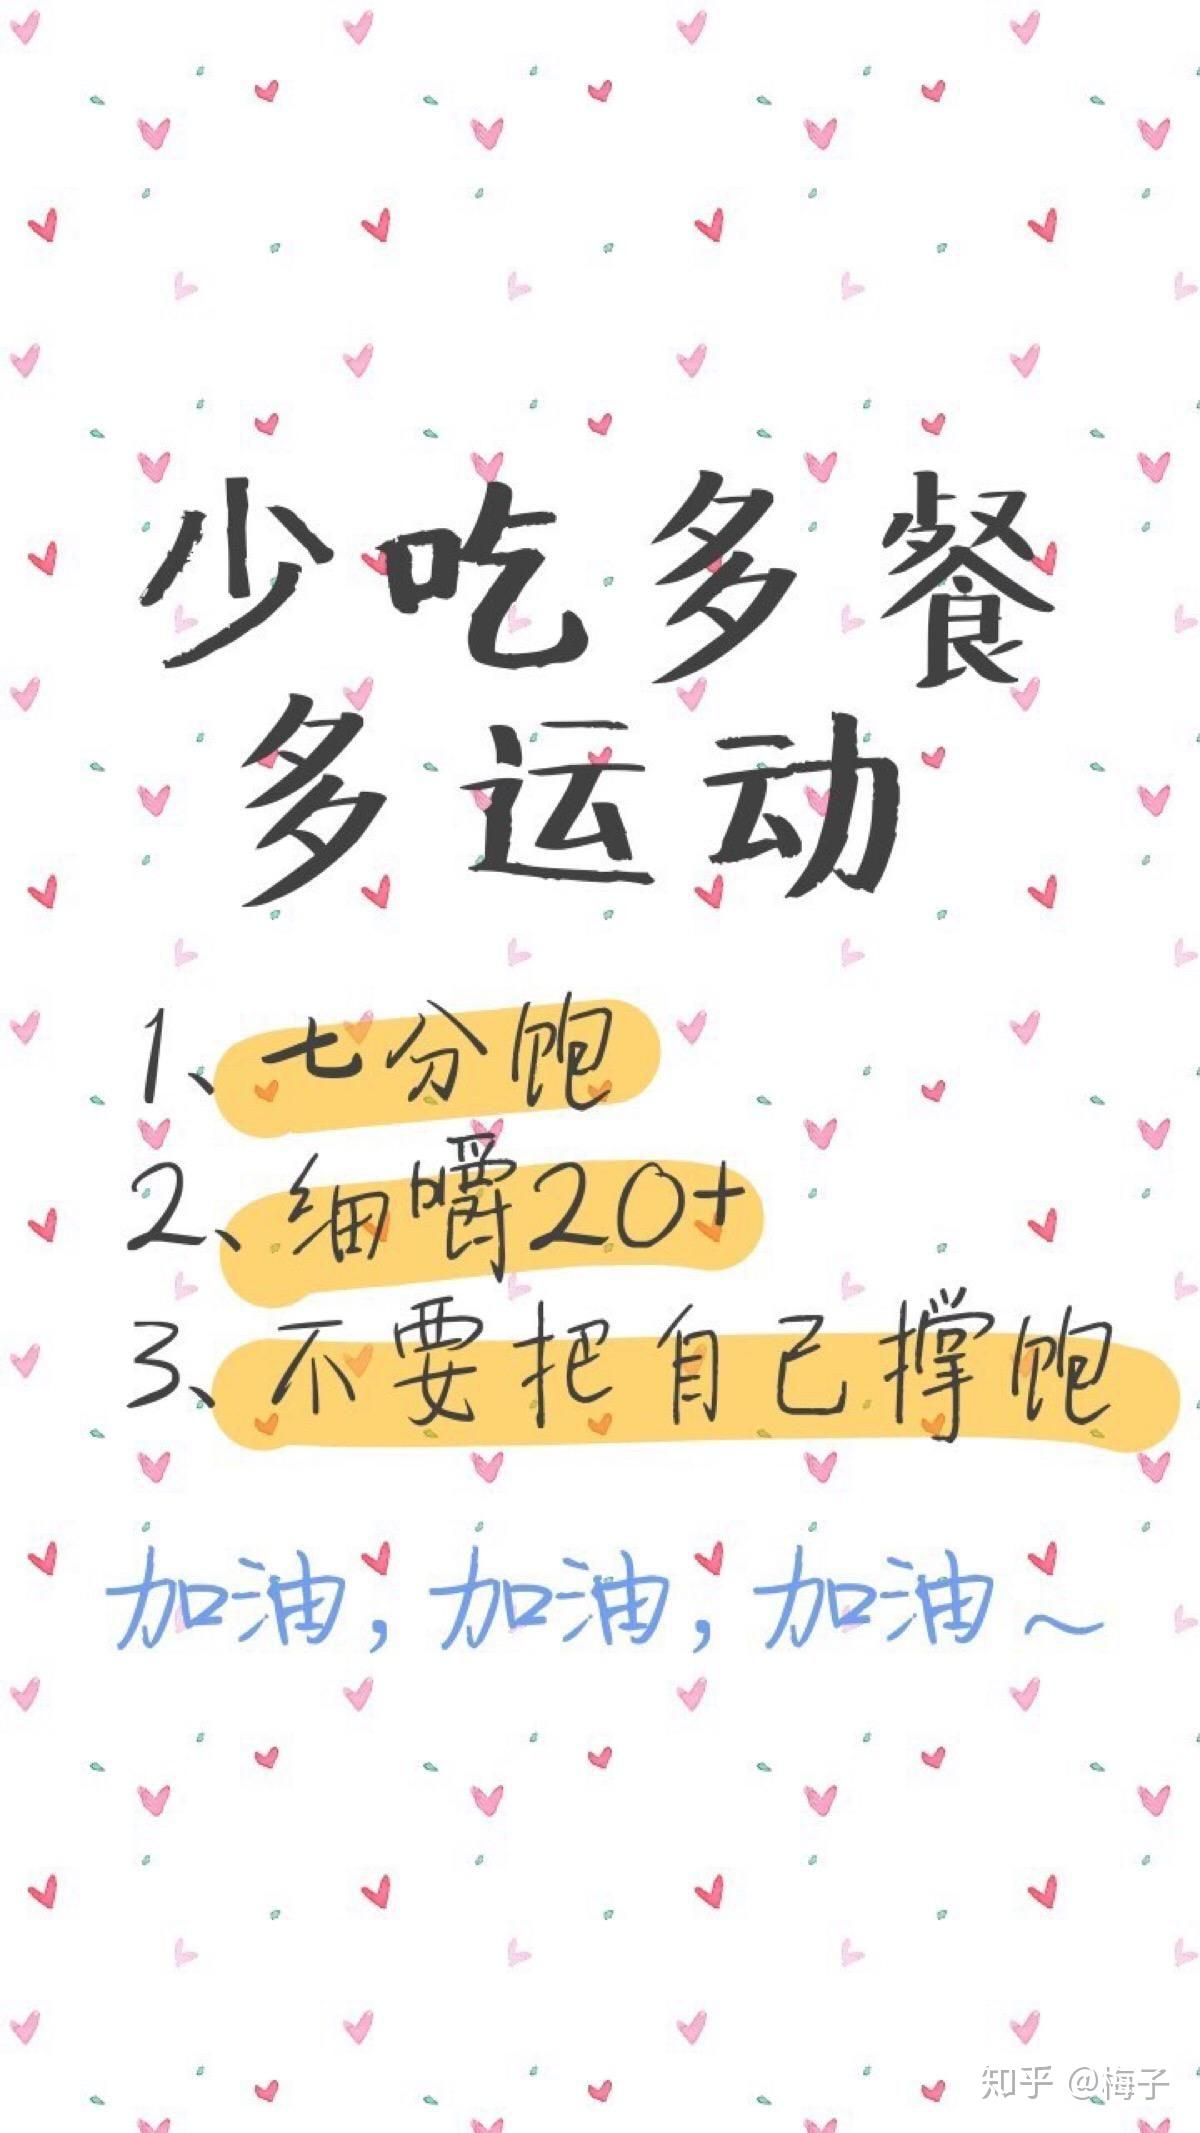 少吃多餐
多运动
1、七分饱
2、细嚼20+
3、不要把自己撑饱
加油，加油，加油～
知乎 @梅子